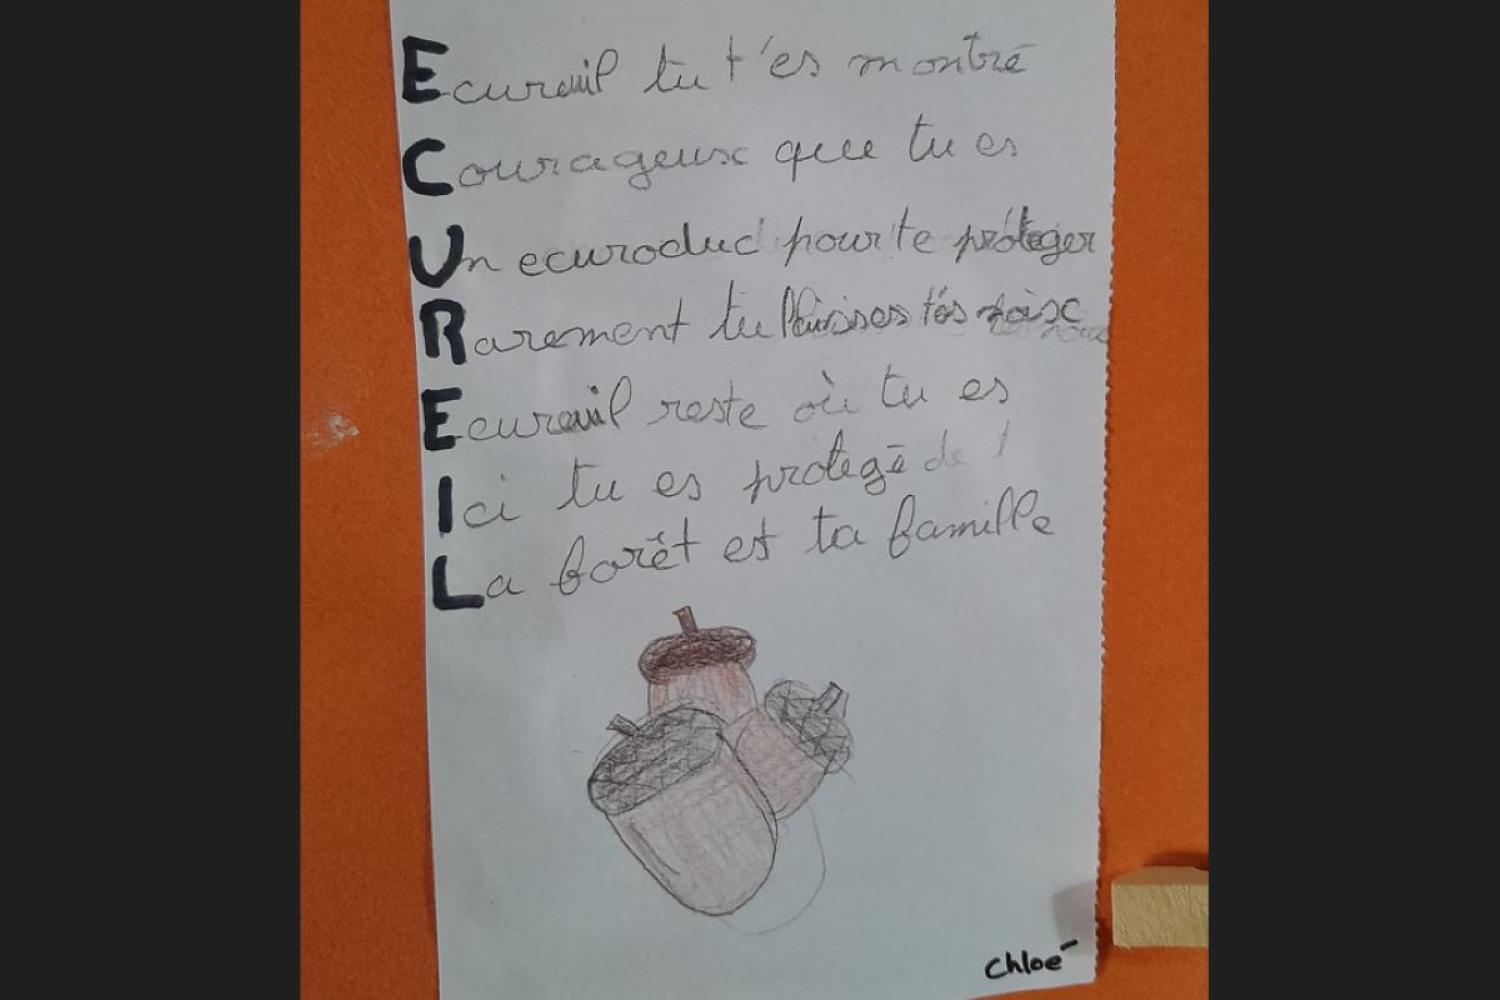 Ecureuil tu t'es montré
Courageux que tu es
Un ecuroduc pour te protéger
Rarement tu laisses tes noix
Ecureuil reste où tu es
Ici tu es protegé de
La forêt est ta famille
Chloé